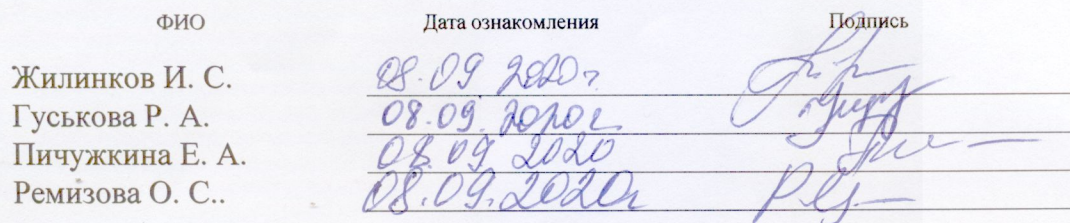 ФИО Дата ознакомления Подпись
Жилинков И. С. 08.09 2020г.
Гуськова Р. А. 08.09.2020г.
Пичужкина Е. А. 08.09 2020
Ремизова О. С.. 08.09.2020г